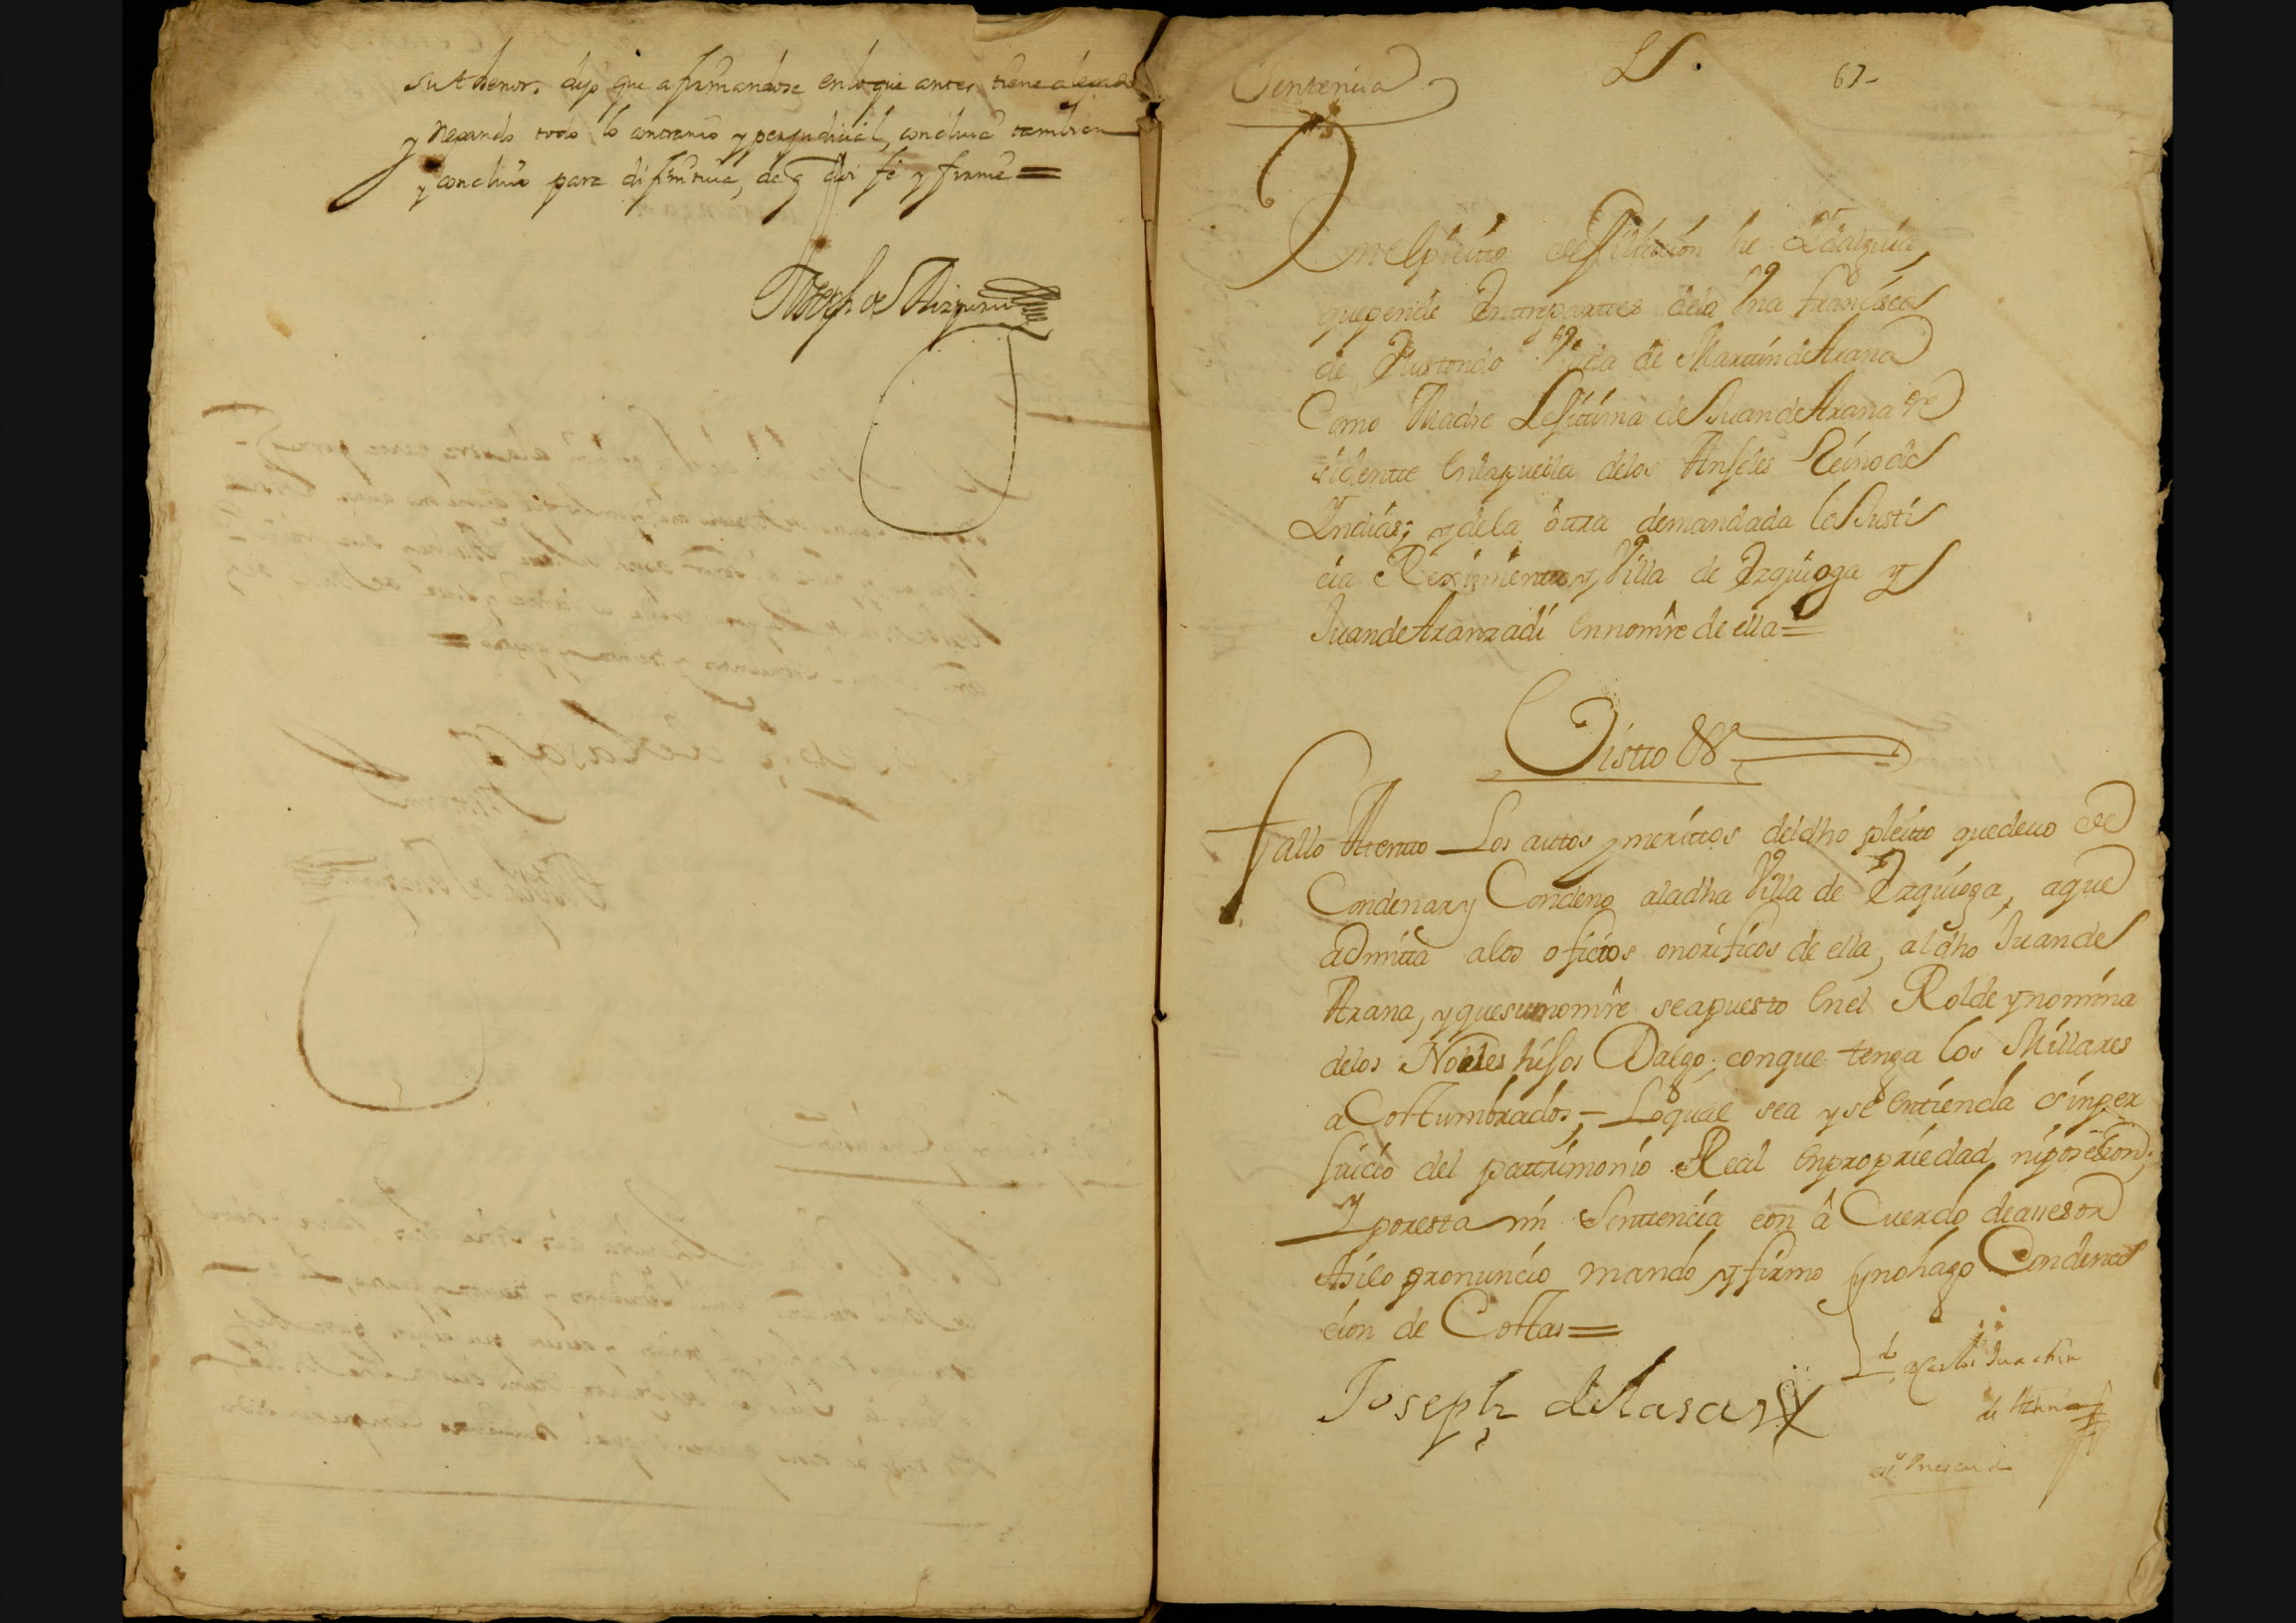 su thenor, dijo que afirmandose en lo que antes tiene alegado
y negando todo lo contrario y perjudicial, concluia tambien
y concluio para difinitiua, de q doi fe y firme =
Joseph de
Sentencia
67
En el pleitto de fillación he Ydalguia,
que pende Entre parttes de la Vna francisca
de Viuda de Marttin de Arana
Como Madre Lejitima de Juan de Arana re
sidentte En la puebla de los Anjeles Reino de
Yndias; y de la ôttra demandada la Justi
cia Reximiento y Villa de Ezquioga y
Juan de Aranzadi en nomre de ella =
Vistto &
fallo Attentto Los auttos y merittos del dho pleitto que deuo de
Condenar y Condeno a la dha Villa de Ezquioga, a que
admitta a los oficios onorificos de ella, al dho Juan de
Arana, y que su nomre sea puesto En el Rolde y nomina
de los Nobles hijos Dalgo; con que tenga los Millares
aCosttumbrados; – Lo qual sea y se Entienda sin per
juicio del pattrimonio Real En propriedad ni posesion;
Y por esta mi Senttencia con âCuerdo de assesor
Asi lo pronuncio mando y firmo y no hago Condena
cion de Costtas =
Joseph de lasas